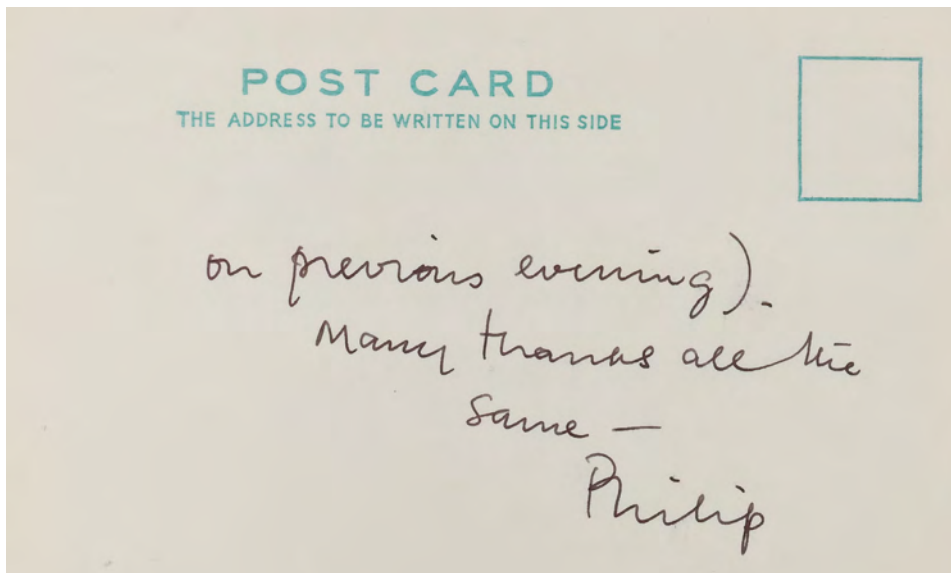 POST CARD
THE ADDRESS TO BE WRITTEN ON THIS SIDE
on previous evening).
Many thanks all the
same —
Philip